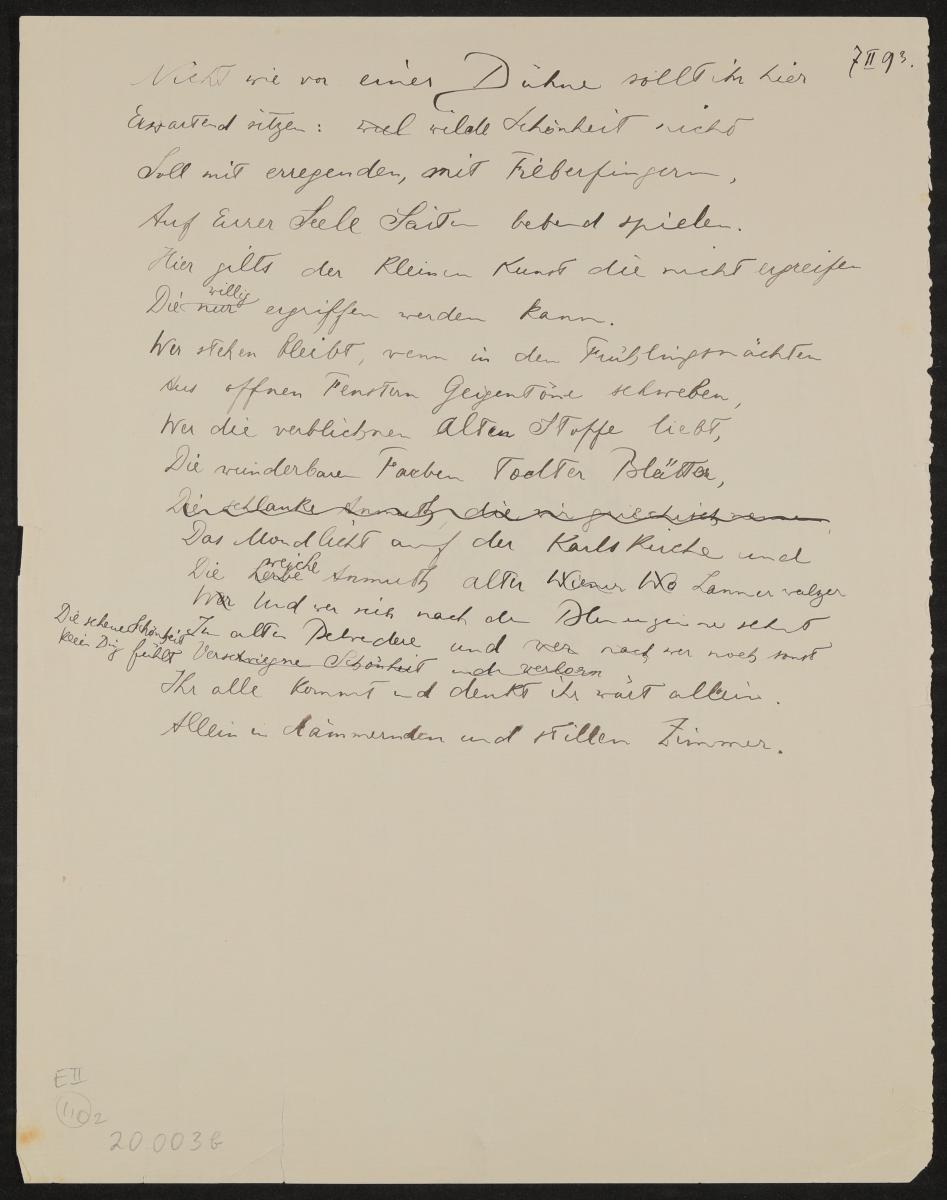 7 II 93.
Nicht wie vor einer Bühne sollt ihr hier
Erwartend sitzen: wilde Schönheit nicht
Soll mit erregenden, mit Fieberfingern,
Auf Eurer Seele Saiten bebend spielen.
Hier gilts der kleinen Kunst die nicht ergreifen
willig
Die nur ergriffen werden kann.
Wer stehen bleibt, wenn in den Frühlingsnächten
Aus offnen Fenstern Geigentöne schweben,
Wer die verblichnen alten Stoffe liebt,
Die wunderbaren Farben todter Blätter,
Die schlanke Anmuth, die wir griechisch nennen,
Das Mondlicht auf der Karlskirche und
weiche
Die herbe Anmuth alter Wiener Wa Lannerwalzer
Wer Und wer sich nach den Blumen sehnt
Im alten Belvedere und wer nach wer noch sonst
Die scheue Schönheit
klein Ding fühlt
Verschwiegne Schönheit und verlorn
Ihr alle kommt und denkt ihr wärt allein.
Allein in dämmernden und stillen Zimmer.
E II
110 2
20.003b